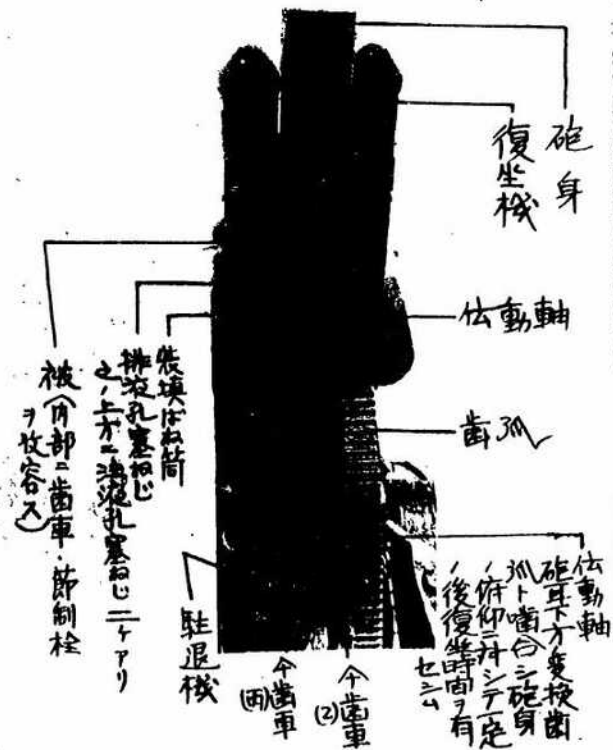 砲身
復坐機
伝動軸
歯弧
伝動軸
砲耳下方変換歯
弧ト噛合シ砲身
ノ俯仰ニ対シテ一定
ノ後復坐時間ヲ有
セシム
仝歯車
(乙)
仝歯車
(丙)
駐退機
装填ばね筒
排液孔塞ねじ
之ノ上方ニ注液孔塞ねじ二ケアリ
被(内部ニ歯車・節制栓
ヲ收容ス)